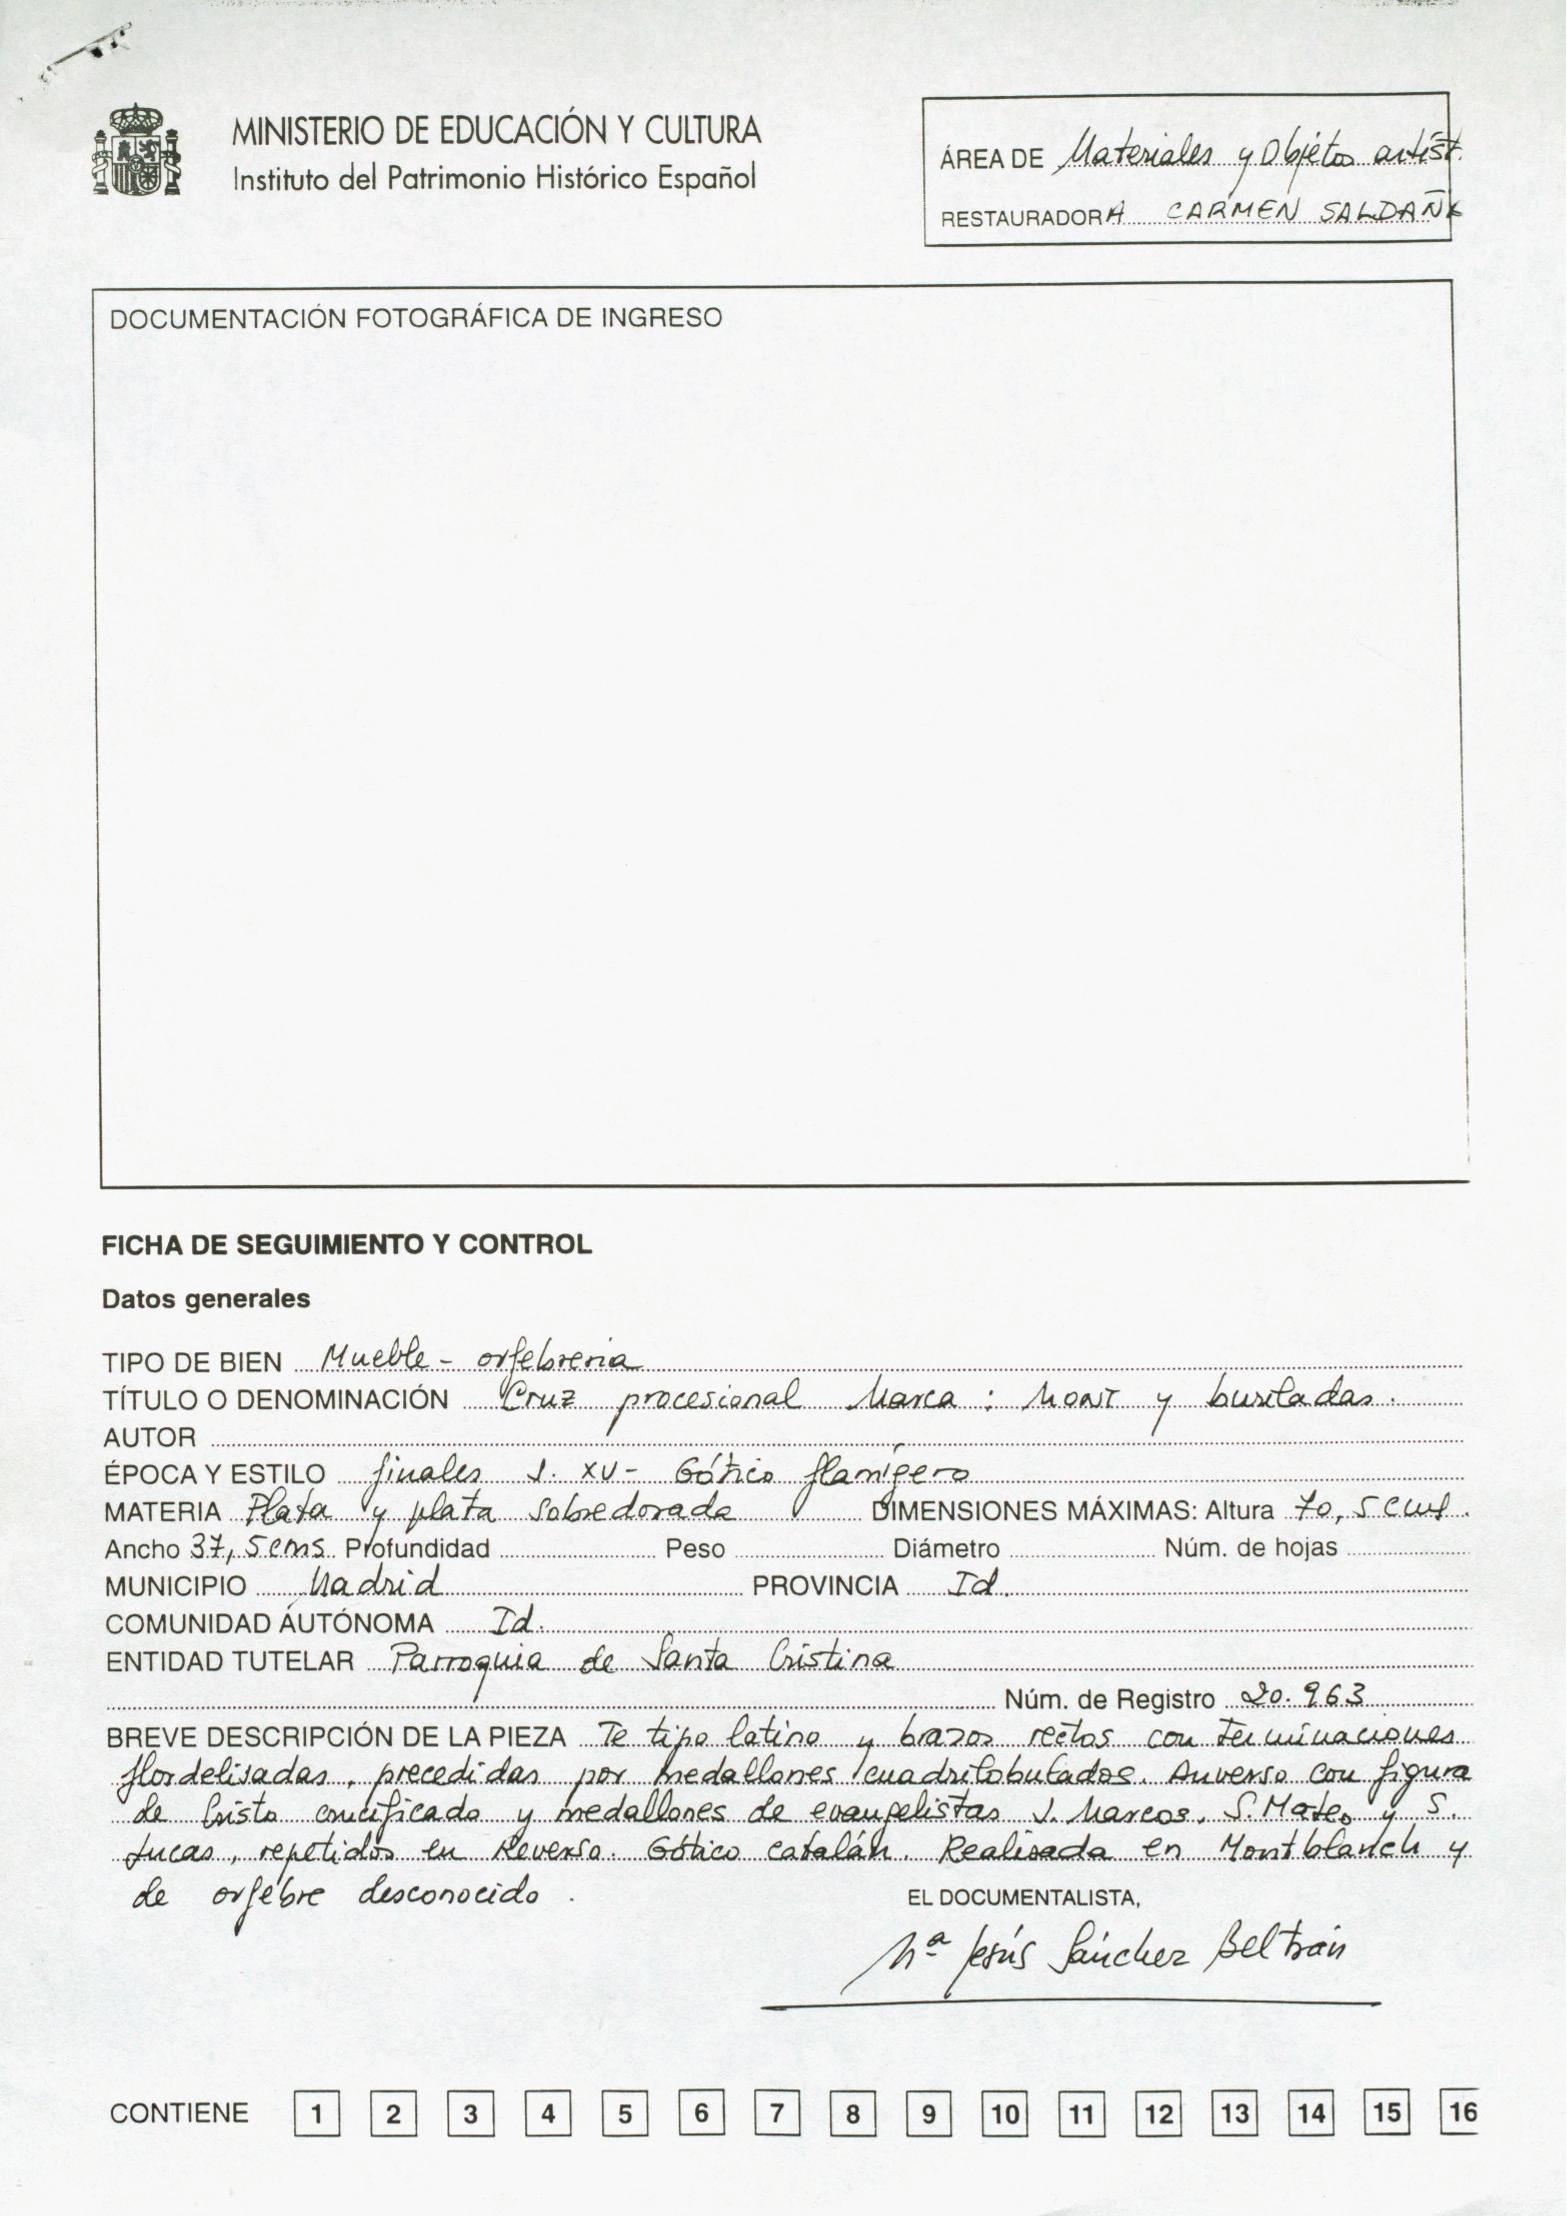 MINISTERIO DE EDUCACIÓN Y CULTURA
Instituto del Patrimonio Histórico Español
ÁREA DE Materiales y Objetos artíst.
RESTAURADORA CARMEN SALDAÑA
DOCUMENTACIÓN FOTOGRÁFICA DE INGRESO
FICHA DE SEGUIMIENTO Y CONTROL
Datos generales
TIPO DE BIEN Mueble - orfebreria
TÍTULO O DENOMINACIÓN Cruz procesional Marca : MONT y buriladas.
AUTOR
ÉPOCA Y ESTILO finales S. XV - Gótico flamígero
MATERIA Plata y plata sobredorada DIMENSIONES MÁXIMAS: Altura 70,5 cms.
Ancho 37,5 cms Profundidad Peso Diámetro Núm. de hojas
MUNICIPIO Madrid PROVINCIA Id.
COMUNIDAD AUTÓNOMA Id.
ENTIDAD TUTELAR Parroquia de Santa Cristina
Núm. de Registro 20.963
BREVE DESCRIPCIÓN DE LA PIEZA De tipo latino y brazos rectos con terminaciones
flordelisadas, precedidas por medallones cuadrilobulados. Anverso con figura
de Cristo crucificado y medallones de evangelistas S. Marcos, S. Mateo y S.
Lucas, repetidos en Reverso. Gótico catalán. Realizada en Montblanch y
de orfebre desconocido.
EL DOCUMENTALISTA,
Mª Jesús Sánchez Beltrán
CONTIENE 1 2 3 4 5 6 7 8 9 10 11 12 13 14 15 16